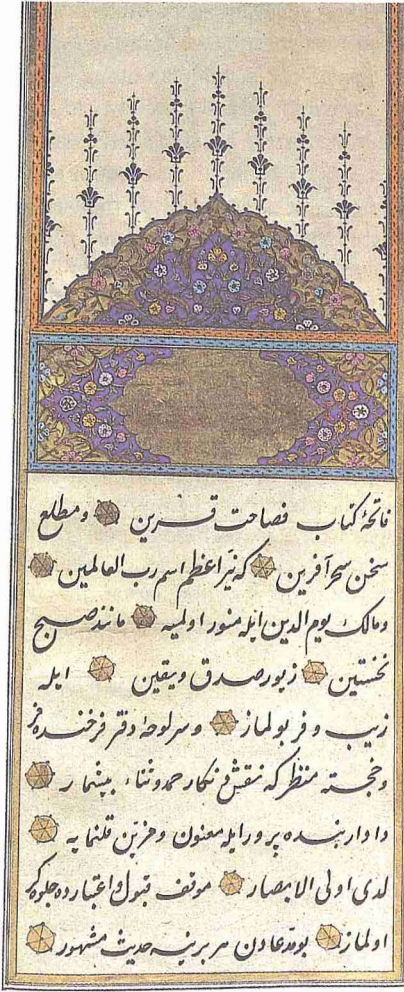 فاتحهٔ کتاب فصاحت قرین ومطلع
سخن سحرآفرین که نیر اعظم اسم رب العالمین
ومالک یوم الدین ایله منور اولمیه مانند صبح
نخستین زیور صدق ویقین ایله
زیب وفر بولماز وسرلوحهٔ دفتر فرخنده فر
وخجسته منظر که نقش ونکار حمد وثناء بیشمار
داور بنده پرور ایله معنون ومزین قلنمایه
لدی اولی الابصار موقف قبول واعتبارده جلوه کر
اولماز بو مدعادن هر برینه حدیث مشهور